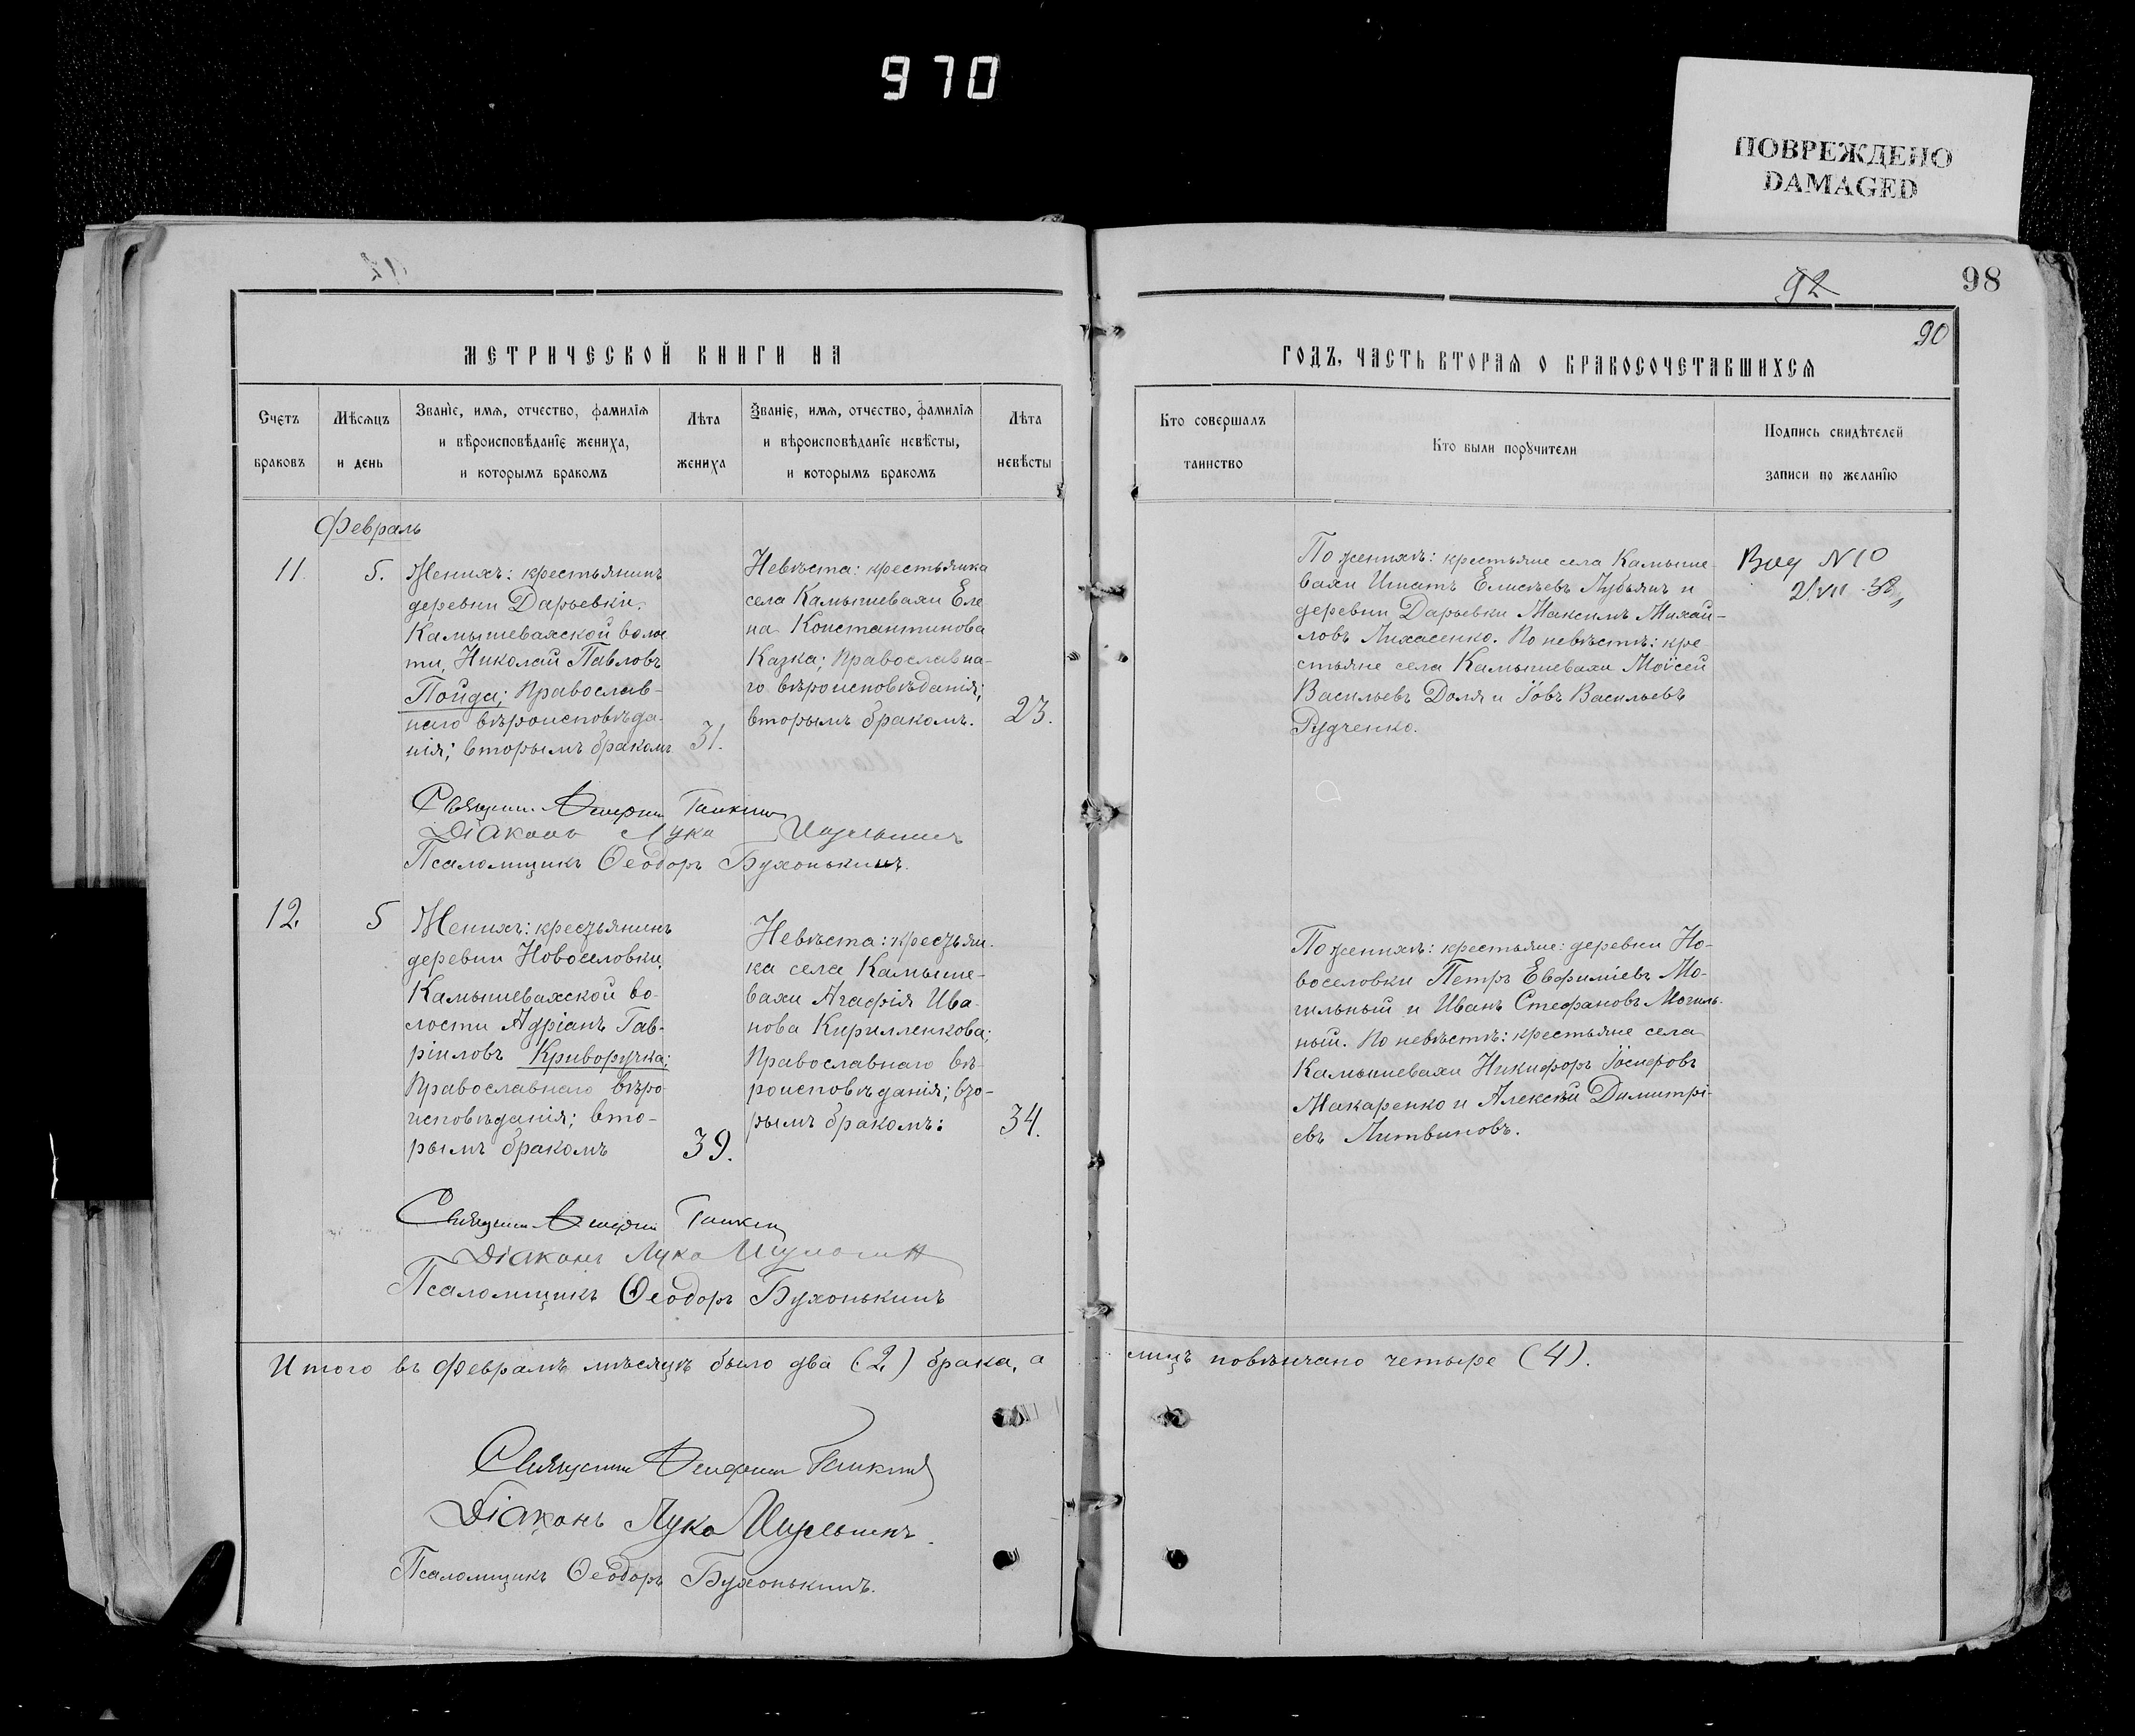 970
ПОВРЕЖДЕНО
DAMAGED
92
98
90
МЕТРИЧЕСКОЙ КНИГИ НА
ГОДЪ, ЧАСТЬ ВТОРАЯ О БРАКОСОЧЕТАВШИХСЯ
Счетъ
браковъ
Мѣсяцъ
и день
Званіе, имя, отчество, фамилія
и вѣроисповѣданіе жениха,
и которымъ бракомъ
Лѣта
жениха
Званіе, имя, отчество, фамилія
и вѣроисповѣданіе невѣсты,
и которымъ бракомъ
Лѣта
невѣсты
Кто совершалъ
таинство
Кто были поручители
Подпись свидѣтелей
записи по желанію
Февраль
11.
5.
Женихъ: крестьянинъ
деревни Дарьевки,
Камышевахской волос
ти, Николай Павловъ
Пойда; Православ-
наго вѣроисповѣда-
нія; вторымъ бракомъ
31.
Невѣста: крестьянка
села Камышевахи Еле
на Константинова
Казка; Православна-
го вѣроисповѣданія;
вторымъ бракомъ.
23.
По женихѣ: крестьяне села Камыше-
вахи Игнатъ Елисѣевъ Лубянъ и
деревни Дарьевки Максимъ Михай-
ловъ Лихасенко. По невѣстѣ: кре
стьяне села Камышевахи Моѵсей
Васильевъ Доля и Іовъ Васильевъ
Рудченко.
N 10
Діаконъ Лука
Псаломщикъ Ѳеодоръ Бухонькинъ.
12.
5
Женихъ: крестьянинъ
деревни Новоселовки,
Камышевахской во-
лости Адріанъ Гав-
ріиловъ Криворучка;
Православнаго вѣро
исповѣданія; вто-
рымъ бракомъ
39.
Невѣста: крестьян-
ка села Камыше-
вахи Агафія Ива
нова Кирилленкова;
Православнаго вѣ-
роисповѣданія; вто-
рымъ бракомъ:
34.
По женихѣ: крестьяне: деревни Но-
воселовки Петръ Евфиміевъ Мо-
гильный и Иванъ Стефановъ Могиль-
ный. По невѣстѣ: крестьяне села
Камышевахи Никифоръ Іосифовъ
Макаренко и Алексѣй Димитрі-
евъ Литвиновъ.
Діаконъ Лука
Псаломщикъ Ѳеодоръ Бухонькинъ
Итого въ Февралѣ мѣсяцѣ было два (2) брака, а лицъ повѣнчано четыре (4).
Діаконъ Лука
Псаломщикъ Ѳеодоръ Бухонькинъ.